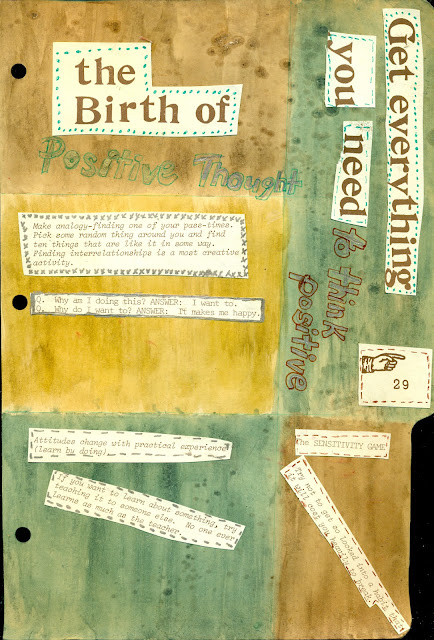 the
Birth of
Positive Thought
Get everything
you need
to think
positive
29
Make analogy-finding one of your pass-times.
Pick some random thing around you and find
ten things that are like it in some way.
Finding interrelationships is a most creative
activity.
Q. Why am I doing this? ANSWER: I want to.
Q. Why do I want to? ANSWER: It makes me happy.
Attitudes change with practical experience
(learn by doing)
If you want to learn about something, try
teaching it to someone else. No one ever
learns as much as the teacher.
The SENSITIVITY GAME
Try not to get so locked into a habit that
it will you to break.